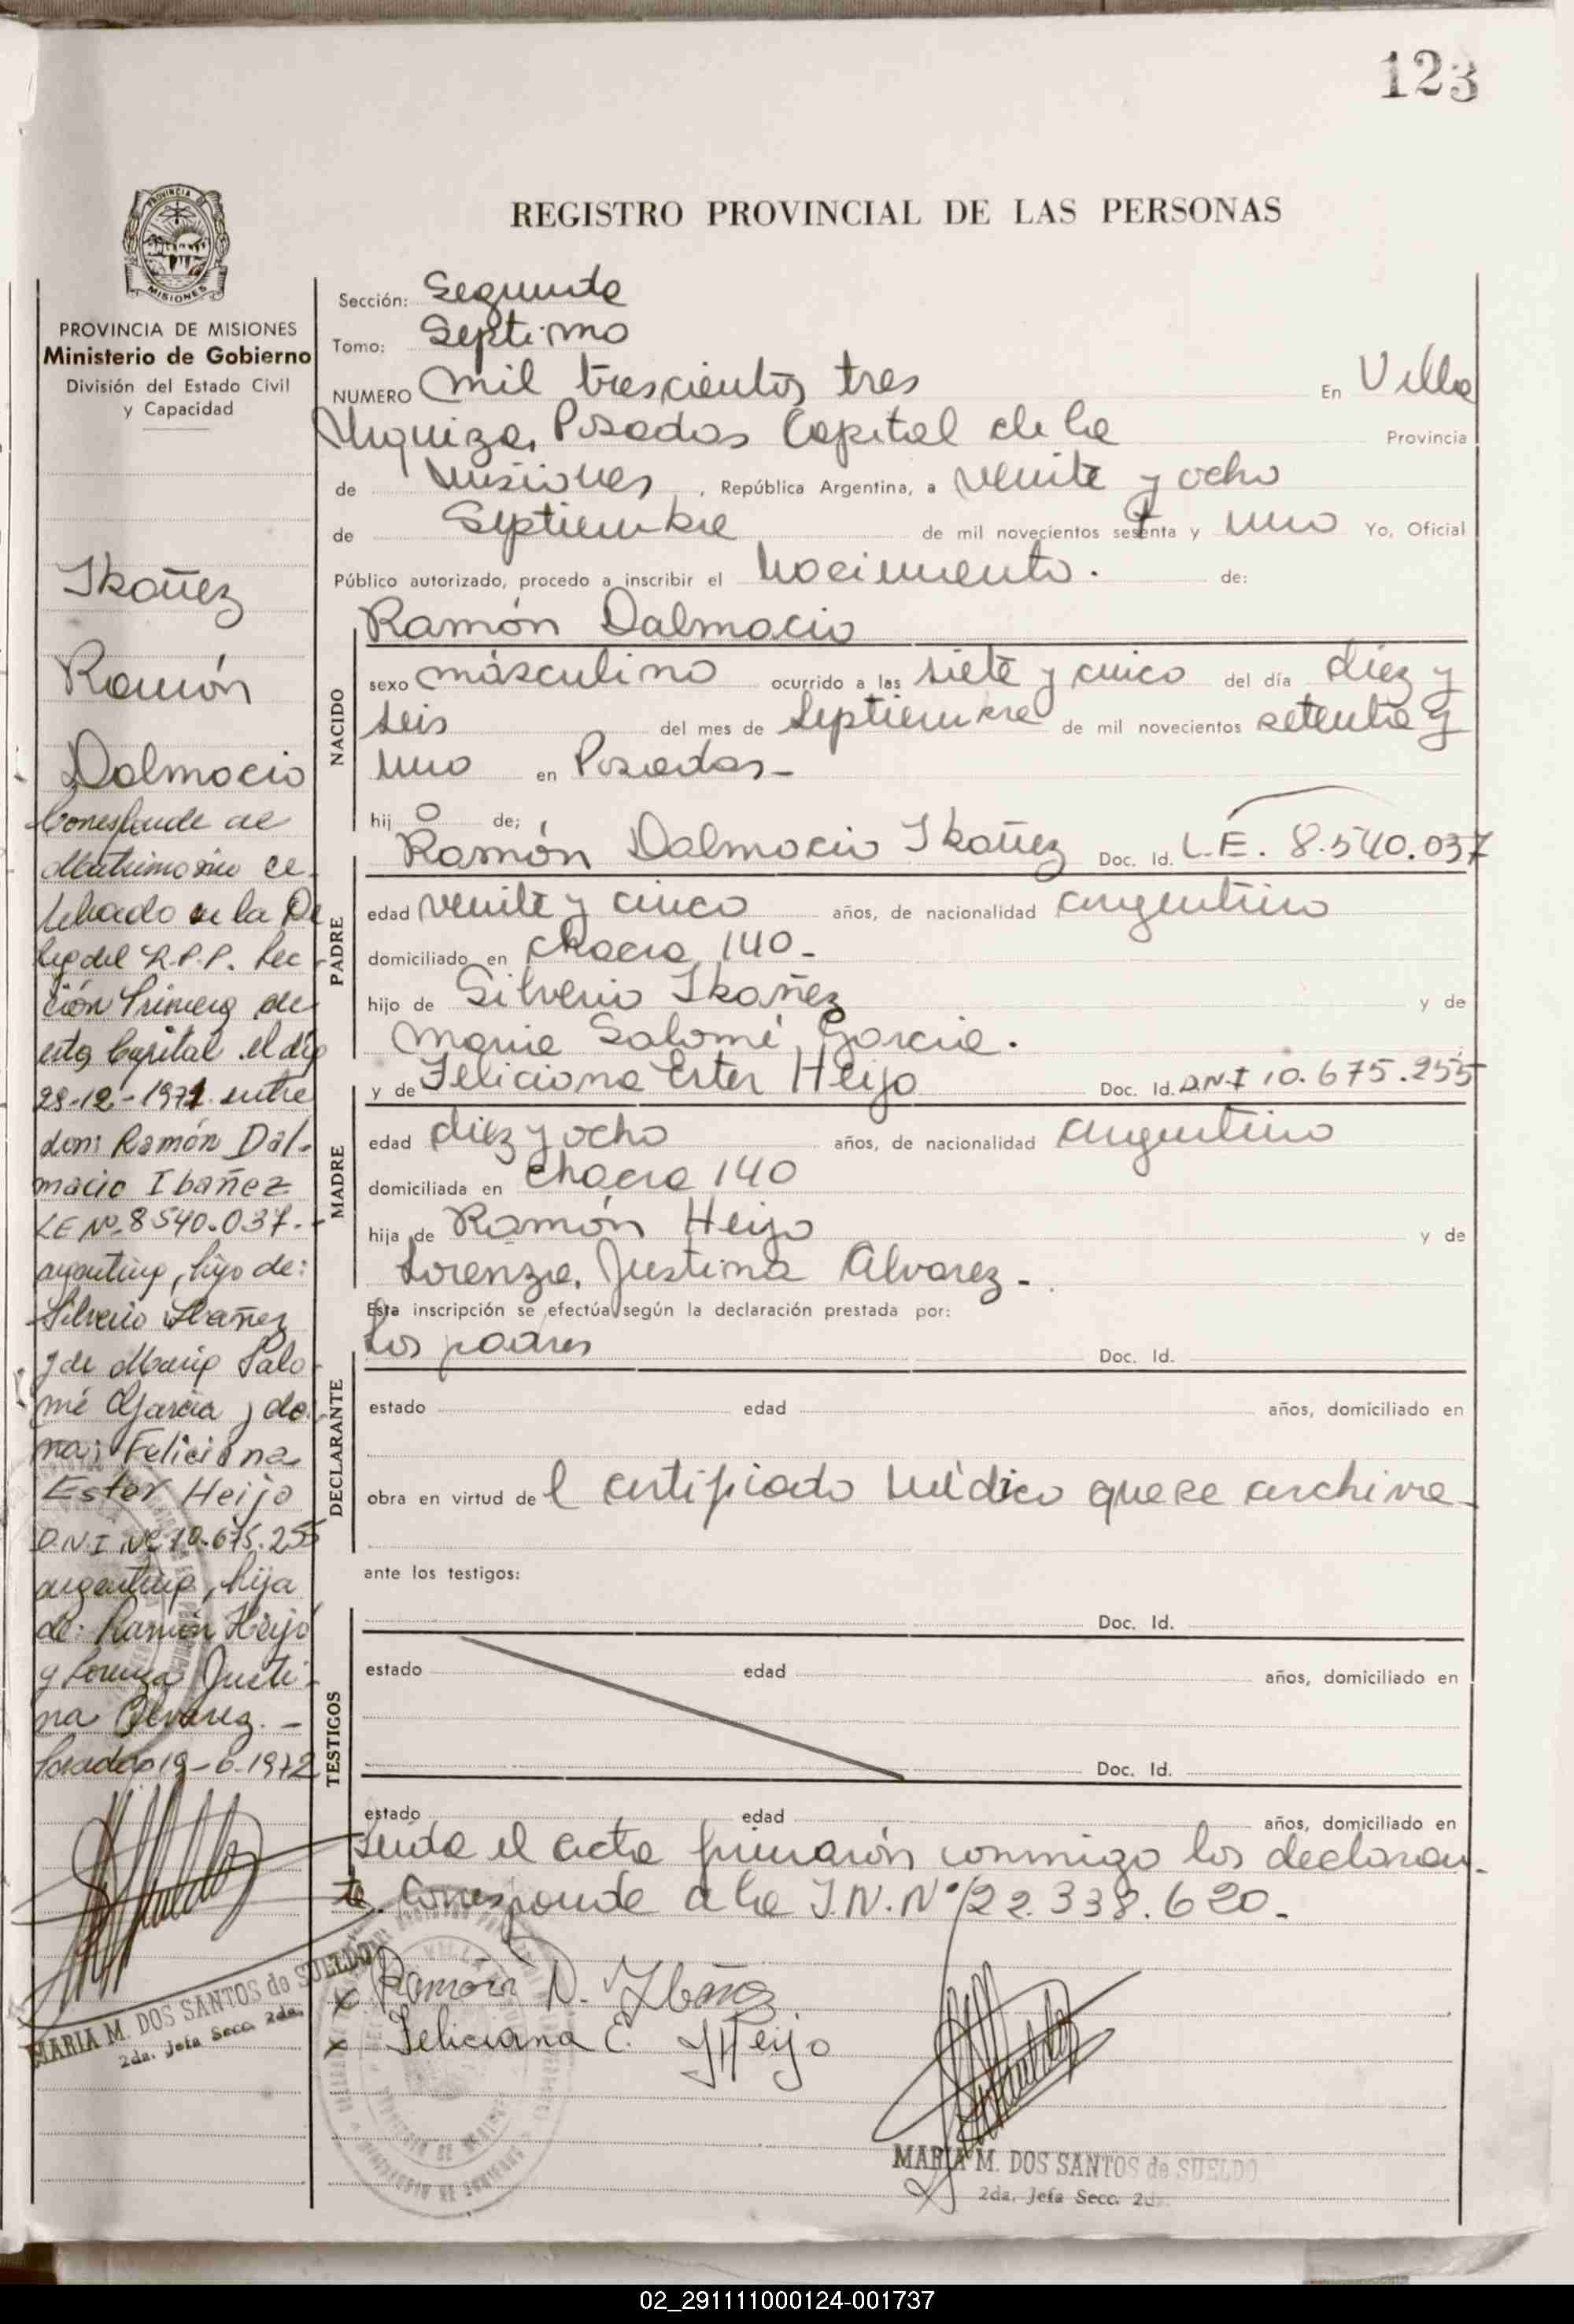 123
REGISTRO PROVINCIAL DE LAS PERSONAS
PROVINCIA DE MISIONES
Ministerio de Gobierno
División del Estado Civil
y Capacidad
Ibañez
Ramón
Dalmacio
Corresponde al
Matrimonio ce
lebrado en la De
leg del R.P.P. Sec
ción Primera de
esta Capital el día
28-12-1971 entre
don: Ramón Dal-
macio Ibañez
LE Nº 8540.037.-
argentino, hijo de:
Silverio Ibañez
y de María Salo
mé García y do
ña: Feliciana
Ester Heijo
D.N.I Nº 10.675.255
argentina, hija
de: Ramón Heijo
y Lorenza Justi-
na Alvarez.-
Posadas 19-6-1972
MARIA M. DOS SANTOS de SUELDO
2da. Jefa Secc. 2da.
Sección: Segunda
Tomo: Septimo
NUMERO mil trescientos tres En Villa
Urquiza, Posadas Capital de la Provincia
de Misiones, República Argentina, a veinte y ocho
de Septiembre de mil novecientos setenta y uno Yo, Oficial
Público autorizado, procedo a inscribir el Nacimiento. de:
Ramón Dalmacio
NACIDO
sexo másculino ocurrido a las siete y cinco del día diez y
seis del mes de Septiembre de mil novecientos setenta y
uno en Posadas-
hijo de;
PADRE
Ramón Dalmacio Ibañez Doc. Id. L.E. 8.540.037
edad veinte y cinco años, de nacionalidad argentino
domiciliado en chacra 140-
hijo de Silverio Ibañez y de
Maria Salomé Garcia.
MADRE
y de Feliciana Ester Heijo Doc. Id. D.N.I 10.675.255
edad diez y ocho años, de nacionalidad argentina
domiciliada en chacra 140
hija de Ramón Heijo y de
Lorenza Justina Alvarez-
Esta inscripción se efectúa según la declaración prestada por:
los padres Doc. Id.
DECLARANTE
estado edad años, domiciliado en
obra en virtud del certificado médico que se archiva-
ante los testigos:
TESTIGOS
Doc. Id.
estado edad años, domiciliado en
Doc. Id.
estado edad años, domiciliado en
Leida el acta firmarón conmigo los declaran-
te. Corresponde a la I.N.Nº 22.338.620.-
x Ramón D. Ibañez
x Feliciana E. Heijo
MARIA M. DOS SANTOS de SUELDO
2da. Jefa Secc. 2da.
02_291111000124-001737